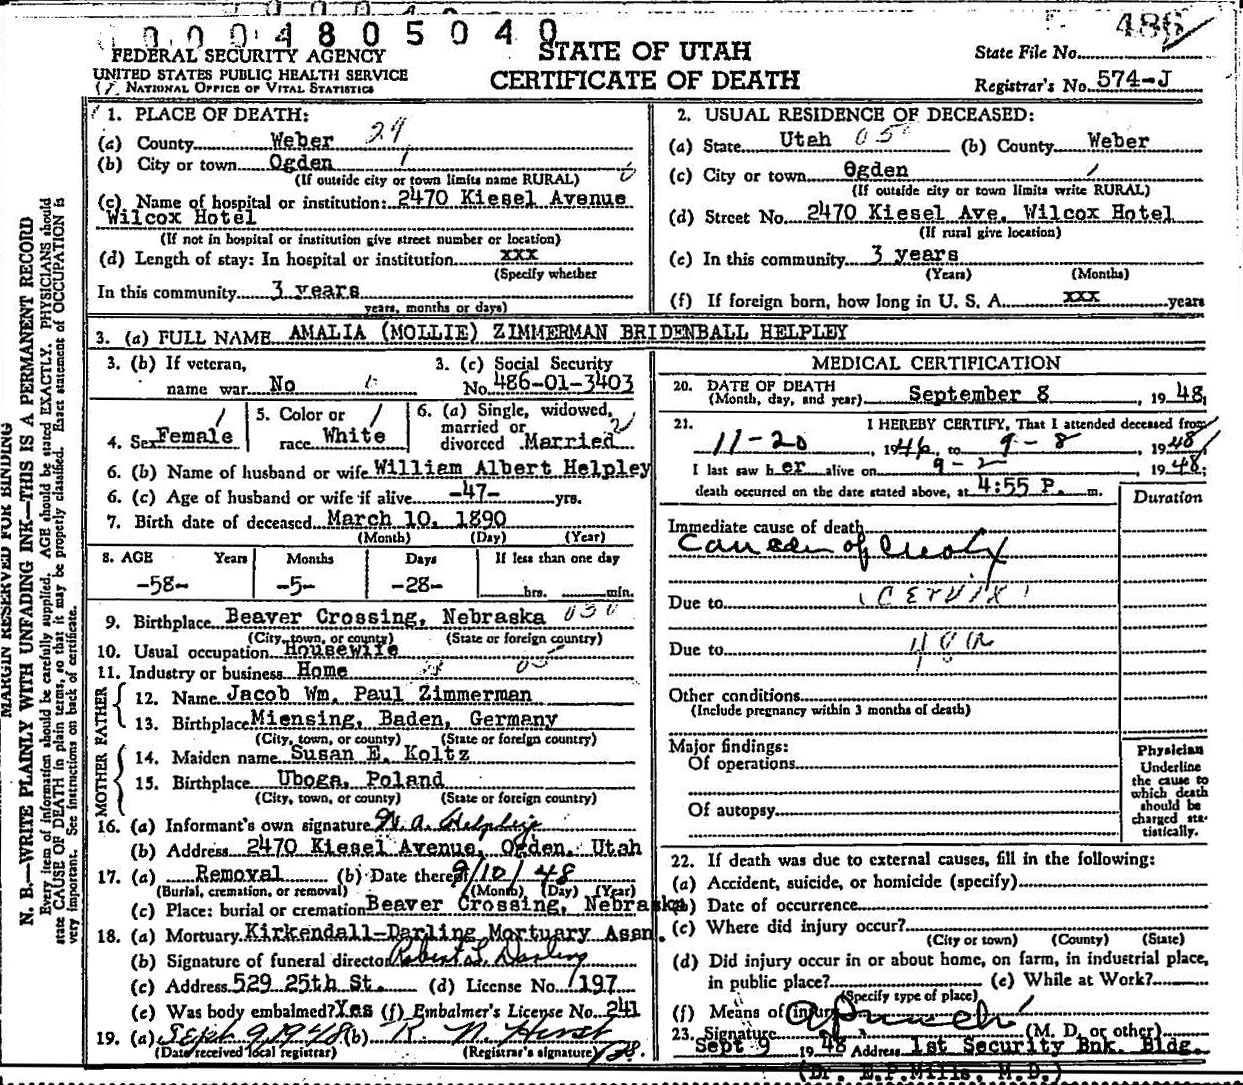 0004805040
FEDERAL SECURITY AGENCY
UNITED STATES PUBLIC HEALTH SERVICE
NATIONAL OFFICE OF VITAL STATISTICS
STATE OF UTAH
CERTIFICATE OF DEATH
486
State File No.
Registrar's No. 574-J
MARGIN RESERVED FOR BINDING
N. B.—WRITE PLAINLY WITH UNFADING INK—THIS IS A PERMANENT RECORD
Every item of information should be carefully supplied. AGE should be stated EXACTLY. PHYSICIANS should
state CAUSE OF DEATH in plain terms, so that it may be properly classified. Exact statement of OCCUPATION is
very important. See instructions on back of certificate.
1. PLACE OF DEATH:
(a) County Weber 29
(b) City or town Ogden
(If outside city or town limits name RURAL)
(c) Name of hospital or institution: 2470 Kiesel Avenue
Wilcox Hotel
(If not in hospital or institution give street number or location)
(d) Length of stay: In hospital or institution xxx
(Specify whether
In this community 3 years
years, months or days)
2. USUAL RESIDENCE OF DECEASED:
(a) State Utah 05 (b) County Weber
(c) City or town Ogden
(If outside city or town limits write RURAL)
(d) Street No. 2470 Kiesel Ave. Wilcox Hotel
(If rural give location)
(e) In this community 3 years
(Years) (Months)
(f) If foreign born, how long in U. S. A. xxx years
3. (a) FULL NAME AMALIA (MOLLIE) ZIMMERMAN BRIDENBALL HELPLEY
3. (b) If veteran,
name war No
3. (c) Social Security
No. 486-01-3403
4. Sex Female
5. Color or
race White
6. (a) Single, widowed,
married or
divorced Married
6. (b) Name of husband or wife William Albert Helpley
6. (c) Age of husband or wife if alive -47- yrs.
7. Birth date of deceased March 10, 1890
(Month) (Day) (Year)
8. AGE Years Months Days If less than one day
-58- -5- -28- hrs. min.
9. Birthplace Beaver Crossing, Nebraska 030
(City, town, or county) (State or foreign country)
10. Usual occupation Housewife
11. Industry or business Home
FATHER
12. Name Jacob Wm. Paul Zimmerman
13. Birthplace Miensing, Baden, Germany
(City, town, or county) (State or foreign country)
MOTHER
14. Maiden name Susan E. Koltz
15. Birthplace Uboga, Poland
(City, town, or county) (State or foreign country)
16. (a) Informant's own signature W. A. Helpley
(b) Address 2470 Kiesel Avenue, Ogden, Utah
17. (a) Removal (b) Date thereof 9/10/48
(Burial, cremation, or removal) (Month) (Day) (Year)
(c) Place: burial or cremation Beaver Crossing, Nebraska
18. (a) Mortuary Kirkendall-Darling Mortuary Assn.
(b) Signature of funeral director Robert L. Darling
(c) Address 529 25th St. (d) License No. 197
(e) Was body embalmed? Yes (f) Embalmer's License No. 241
19. (a) Sept 9, 1948 (b) R. N. Hirst
(Date received local registrar) (Registrar's signature)
MEDICAL CERTIFICATION
20. DATE OF DEATH
(Month, day, and year) September 8, 1948;
21. I HEREBY CERTIFY, That I attended deceased from
11-20, 1946, to 9-8 1948
I last saw her alive on 9-2 1948;
death occurred on the date stated above, at 4:55 P. m.
Duration
Immediate cause of death
Cancer of Cervix
Due to (CERVIX)
Due to
Other conditions
(Include pregnancy within 3 months of death)
Major findings:
Of operations
Of autopsy
Physician
Underline
the cause to
which death
should be
charged sta-
tistically.
22. If death was due to external causes, fill in the following:
(a) Accident, suicide, or homicide (specify)
(b) Date of occurrence
(c) Where did injury occur?
(City or town) (County) (State)
(d) Did injury occur in or about home, on farm, in industrial place,
in public place? (e) While at Work?
(Specify type of place)
(f) Means of injury
23. Signature (M. D. or other)
Sept 9 1948 Address 1st Security Bnk. Bldg.
(Dr. E.P.Mills, M.D.)